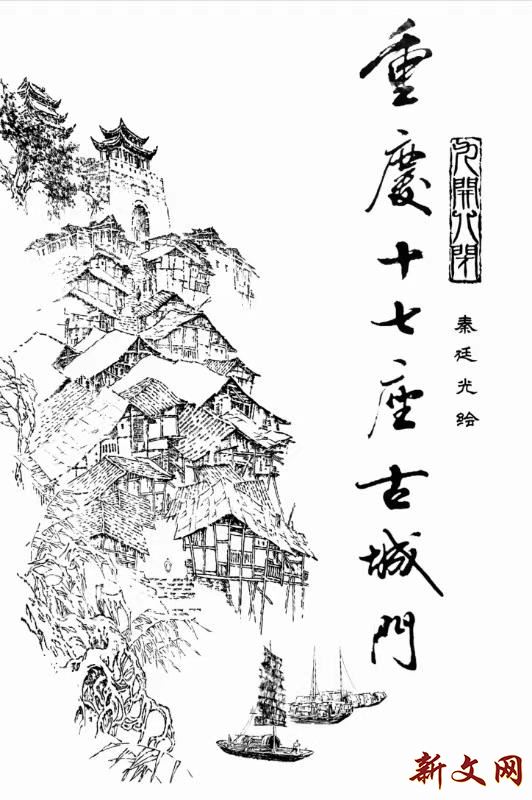 重慶十七座古城門
九開八閉
秦廷光绘
新文网